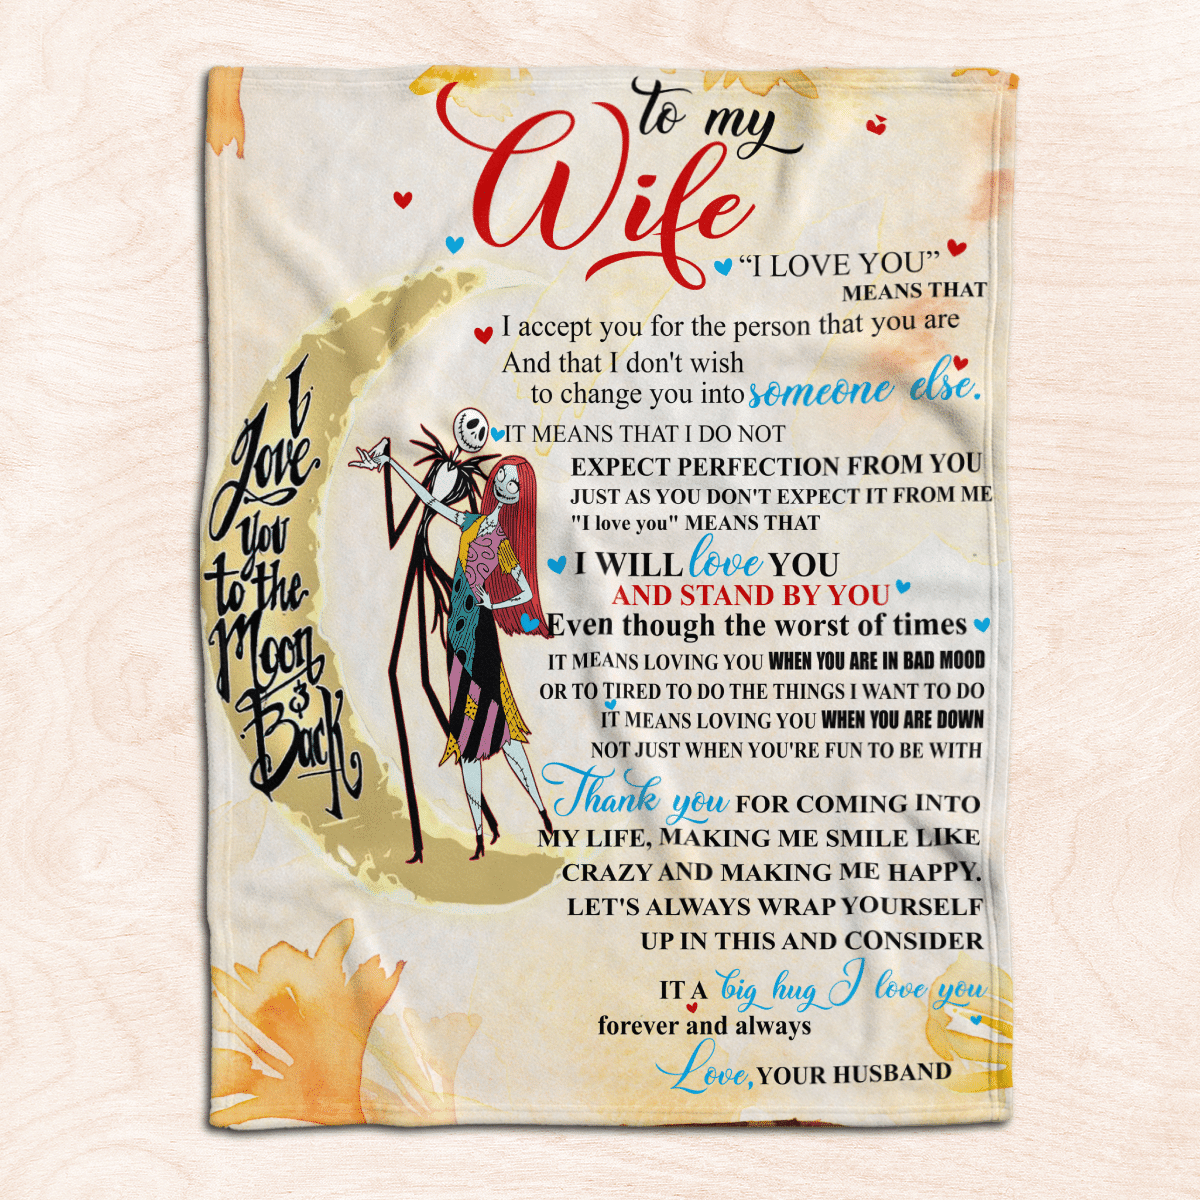 to my
Wife
"I LOVE YOU"
MEANS THAT
I accept you for the person that you are
And that I don't wish
to change you into someone else.
IT MEANS THAT I DO NOT
EXPECT PERFECTION FROM YOU
JUST AS YOU DON'T EXPECT IT FROM ME
"I love you" MEANS THAT
I WILL love YOU
AND STAND BY YOU
Even though the worst of times
IT MEANS LOVING YOU WHEN YOU ARE IN BAD MOOD
OR TO TIRED TO DO THE THINGS I WANT TO DO
IT MEANS LOVING YOU WHEN YOU ARE DOWN
NOT JUST WHEN YOU'RE FUN TO BE WITH
Thank you FOR COMING INTO
MY LIFE, MAKING ME SMILE LIKE
CRAZY AND MAKING ME HAPPY.
LET'S ALWAYS WRAP YOURSELF
UP IN THIS AND CONSIDER
IT A big hug I love you
forever and always
Love, YOUR HUSBAND
I
Love
you
to the
Moon
&
Back